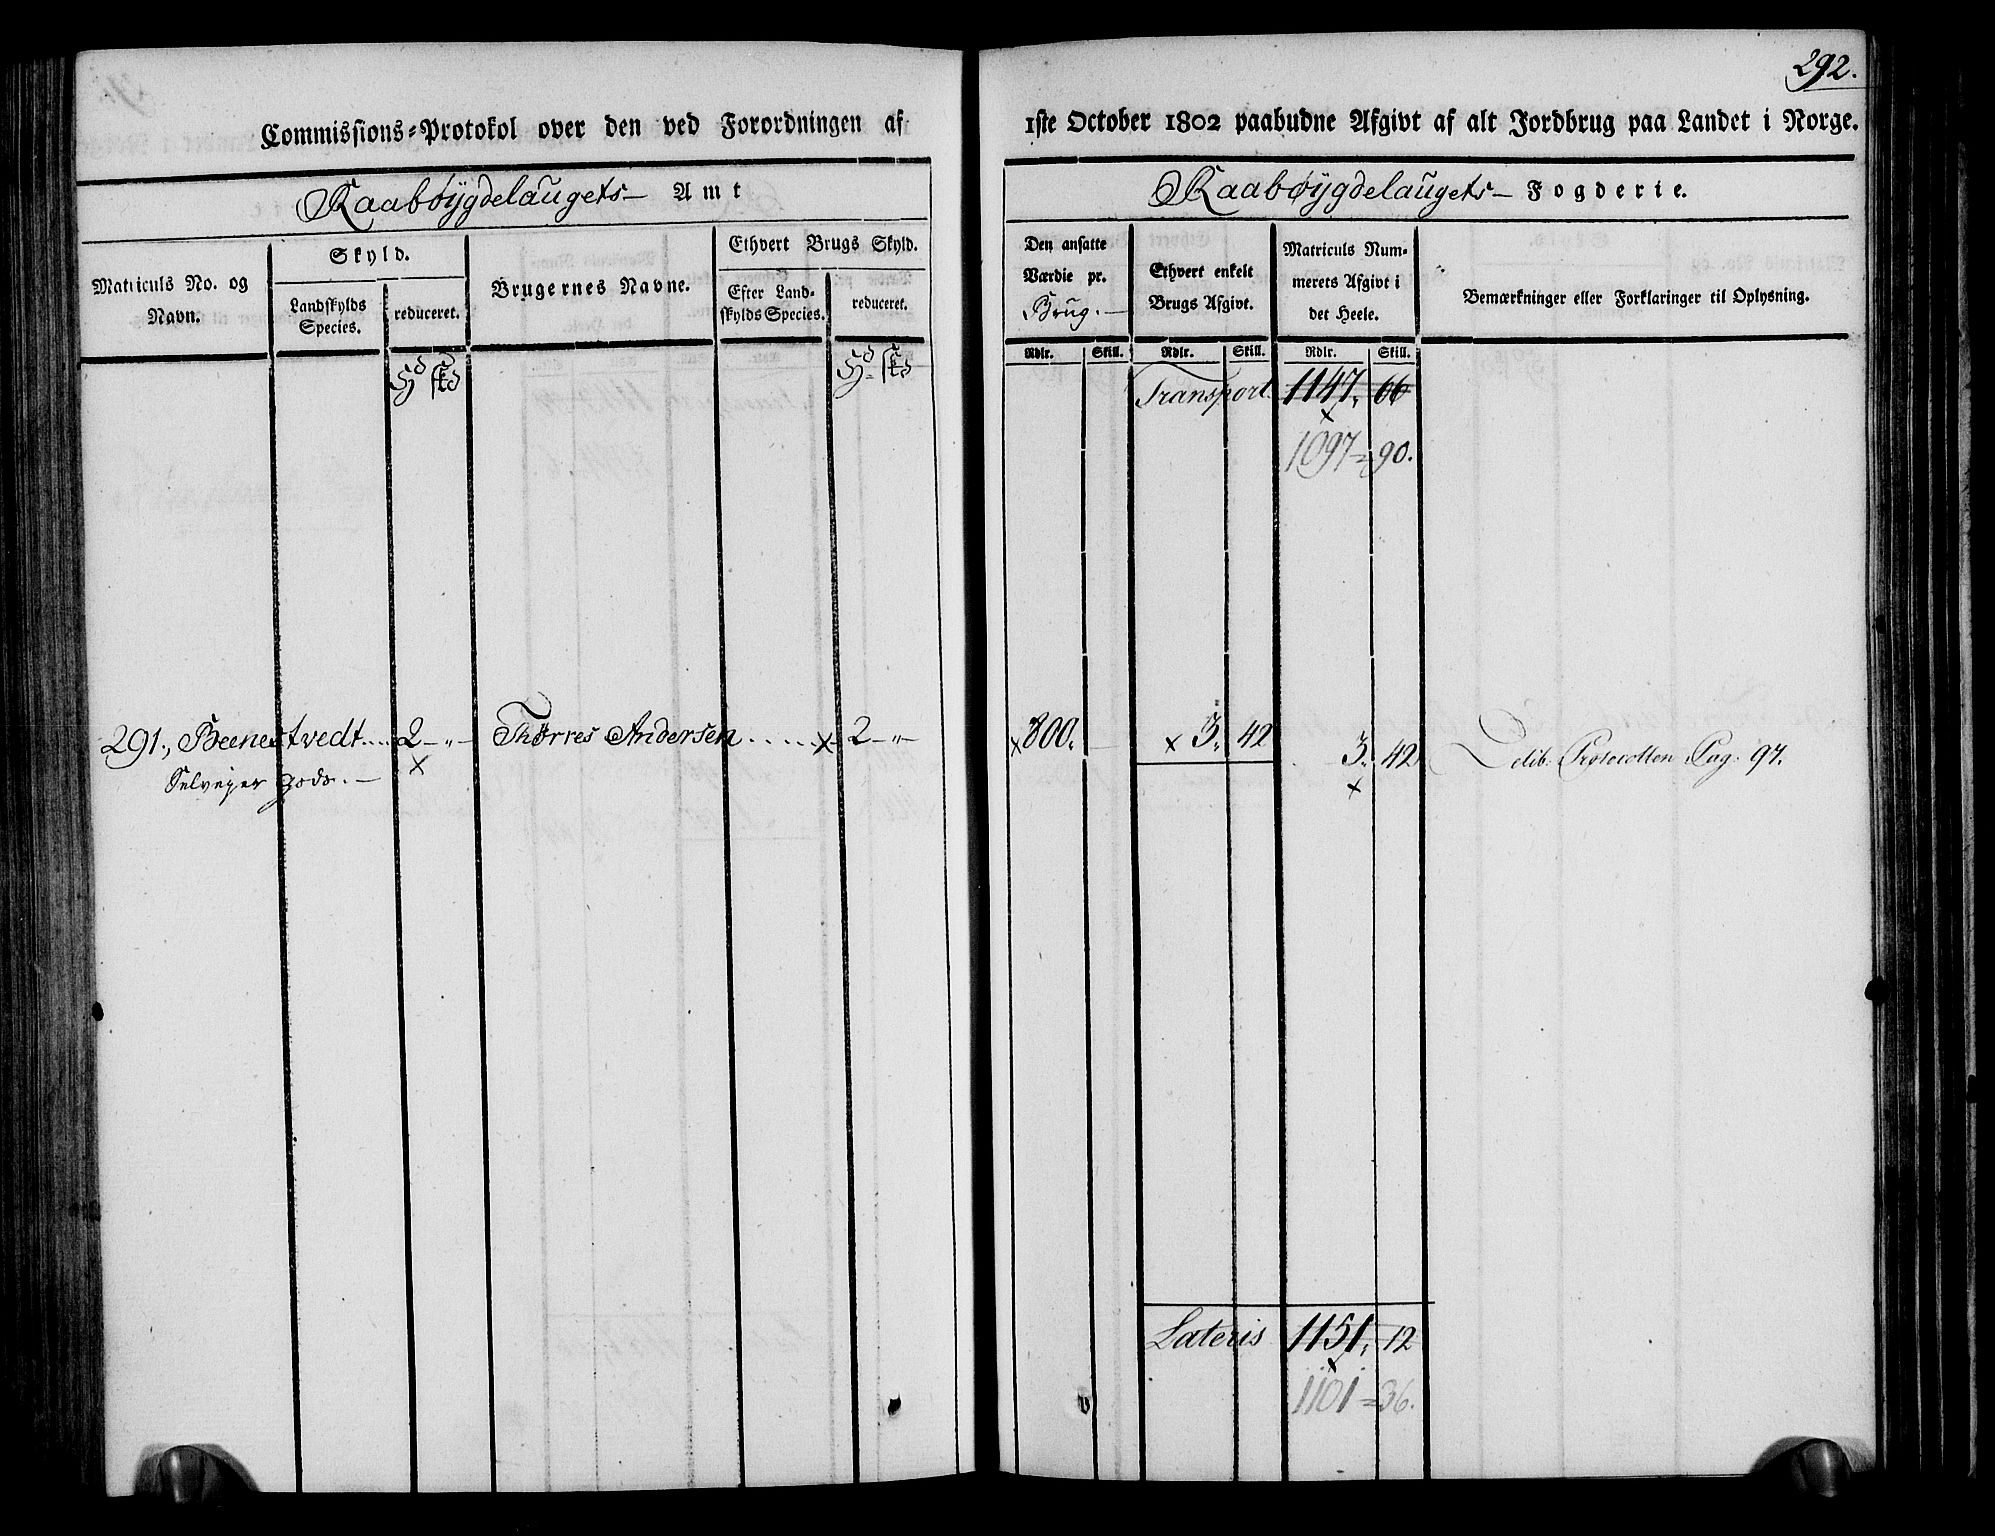 292.
Commissions-Protokol over den ved Forordningen af
1ste October 1802 paabudne Afgivt af alt Jordbrug paa Landet i Norge.
Raabøygdelaugets Amt
Raabøygdelaugets Fogderie.
Matriculs No. og Navn.
Skyld.
Landskylds Species.
reduceret.
Brugernes Navne.
Ethvert Brugs Skyld.
Efter Landskylds Species.
reduceret.
Den ansatte Værdie pr. Brug.
Ethvert enkelt Brugs Afgivt.
Matriculs Nummerets Afgivt i det Heele.
Bemærkninger eller Forklaringer til Oplysning.
Rdlr. Skill. Rdlr. Skill. Rdlr. Skill.
Hd skd
Hd skd
Transport 1147. 66
1097 = 90.
291., Beenestvedt.... 2 - " - Thorres Andersen ..... x 2 - " - x 800. x 3. 42 3. 42 Delib: Protocollen Pag: 97.
Selveyer gods. -
Lateris 1151. 12
1101 = 36.